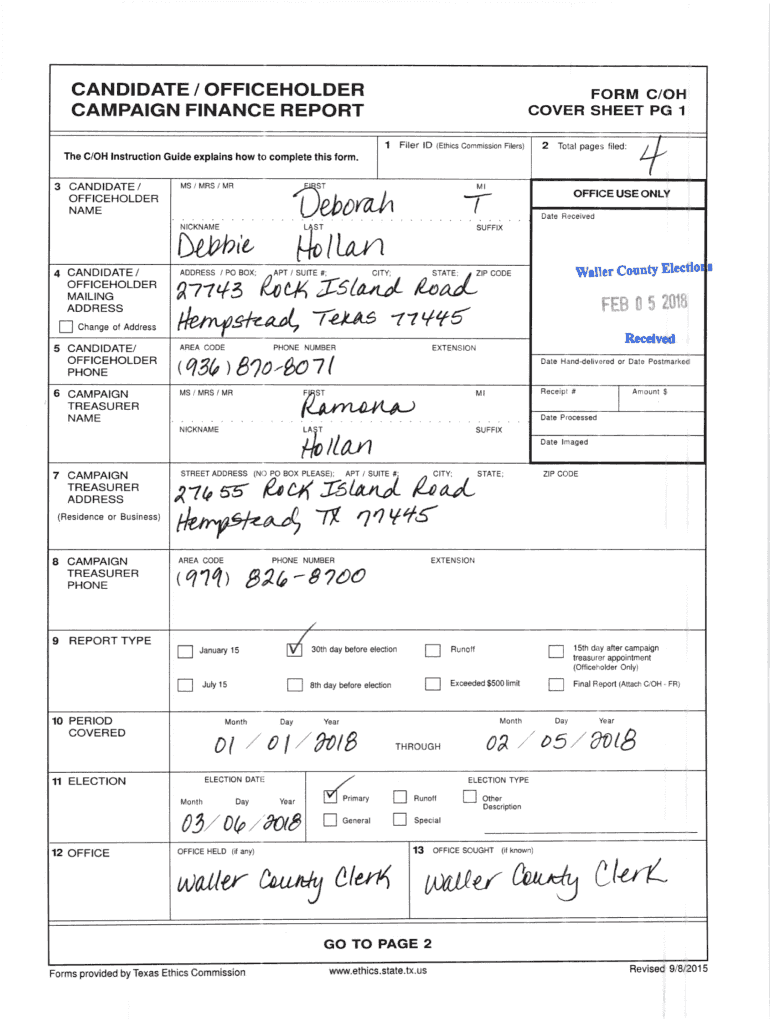 CANDIDATE / OFFICEHOLDER
CAMPAIGN FINANCE REPORT
FORM C/OH
COVER SHEET PG 1
The C/OH Instruction Guide explains how to complete this form.
1 Filer ID (Ethics Commission Filers)
2 Total pages filed:
4
3 CANDIDATE / OFFICEHOLDER NAME
MS / MRS / MR FIRST MI
Deborah T
NICKNAME LAST SUFFIX
Debbie Hollan
OFFICE USE ONLY
Date Received
Waller County Elections
FEB 05 2018
Received
Date Hand-delivered or Date Postmarked
Receipt # Amount $
Date Processed
Date Imaged
4 CANDIDATE / OFFICEHOLDER MAILING ADDRESS
Change of Address
ADDRESS / PO BOX; APT / SUITE #; CITY; STATE; ZIP CODE
27743 Rock Island Road
Hempstead, Texas 77445
5 CANDIDATE/ OFFICEHOLDER PHONE
AREA CODE PHONE NUMBER EXTENSION
(936) 870-8071
6 CAMPAIGN TREASURER NAME
MS / MRS / MR FIRST MI
Ramona
NICKNAME LAST SUFFIX
Hollan
7 CAMPAIGN TREASURER ADDRESS
(Residence or Business)
STREET ADDRESS (NO PO BOX PLEASE); APT / SUITE #; CITY; STATE; ZIP CODE
27655 Rock Island Road
Hempstead, TX 77445
8 CAMPAIGN TREASURER PHONE
AREA CODE PHONE NUMBER EXTENSION
(979) 826-8700
9 REPORT TYPE
January 15
30th day before election
Runoff
15th day after campaign treasurer appointment (Officeholder Only)
July 15
8th day before election
Exceeded $500 limit
Final Report (Attach C/OH - FR)
10 PERIOD COVERED
Month Day Year
01 / 01 / 2018
THROUGH
Month Day Year
02 / 05 / 2018
11 ELECTION
ELECTION DATE
Month Day Year
03 / 06 / 2018
ELECTION TYPE
Primary
Runoff
Other Description
General
Special
12 OFFICE
OFFICE HELD (if any)
Waller County Clerk
13 OFFICE SOUGHT (if known)
Waller County Clerk
GO TO PAGE 2
Forms provided by Texas Ethics Commission
www.ethics.state.tx.us
Revised 9/8/2015